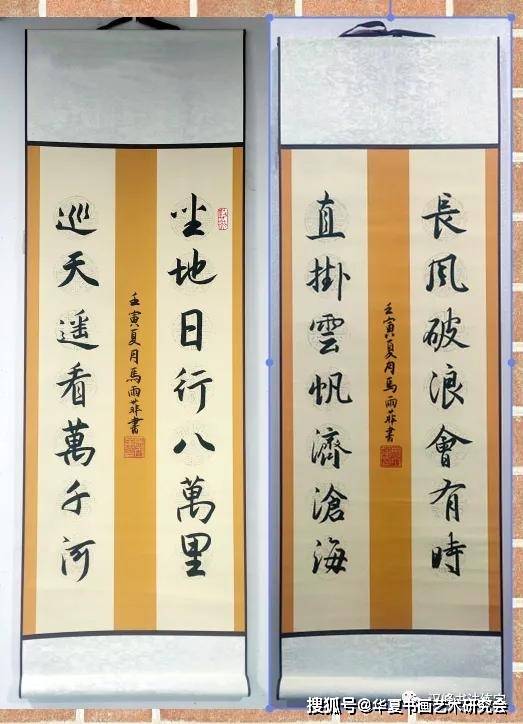 坐地日行八萬里
巡天遥看萬千河
壬寅夏月馬雨菲書
長風破浪會有時
直掛雲帆濟滄海
壬寅夏月馬雨菲書
搜狐号@华夏书画艺术研究会